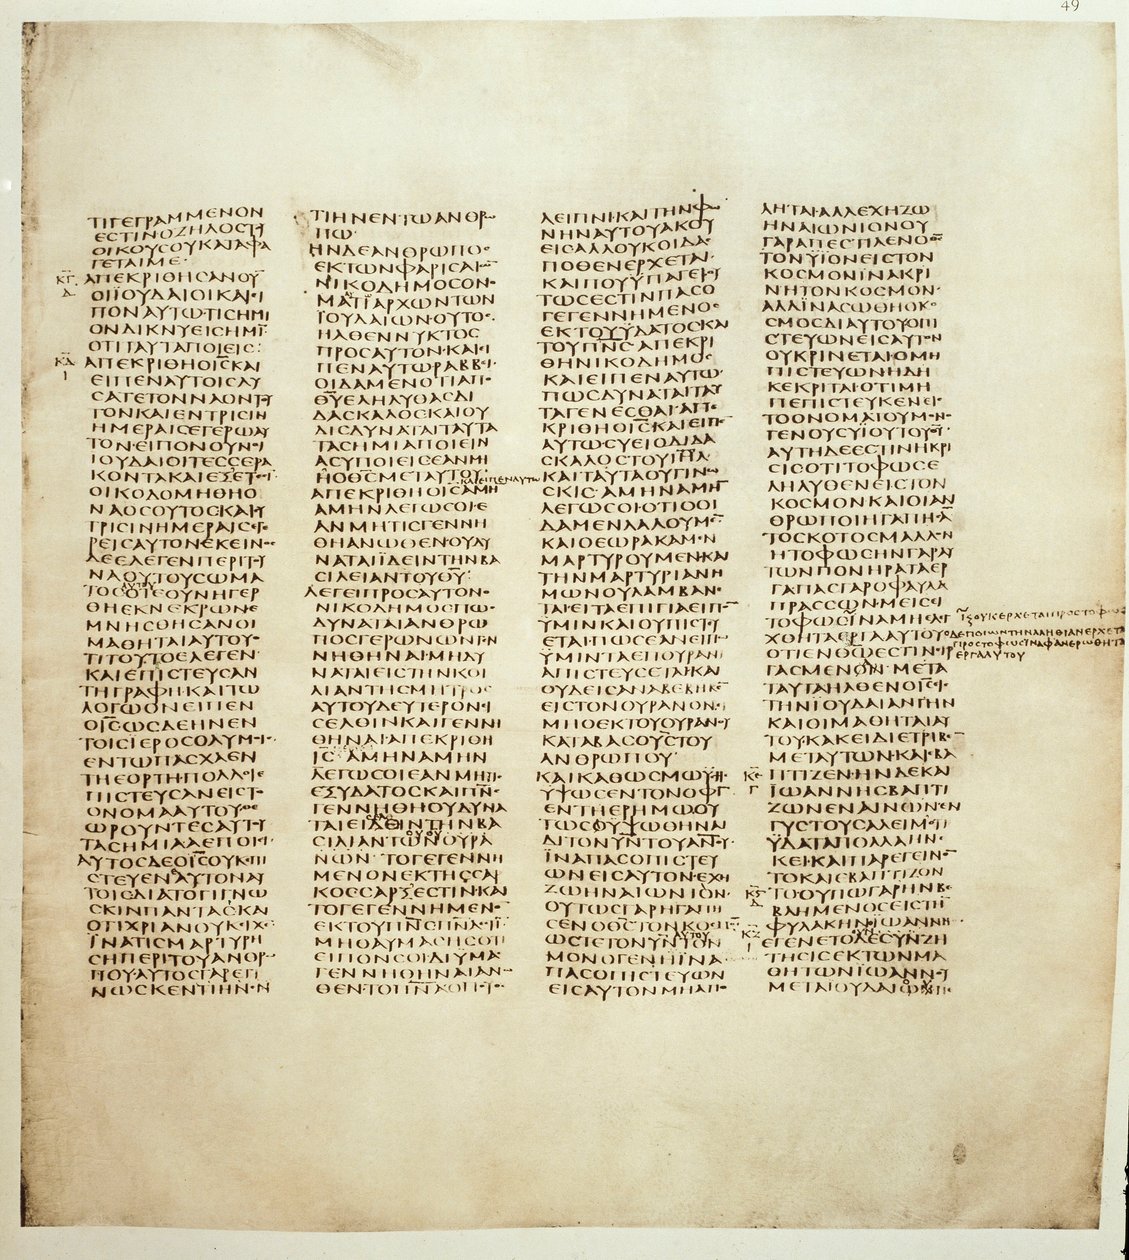 49
ΤΙΓΕΓΡΑΜΜΕΝΟΝ
ΕϹΤΙΝΟΖΗΛΟϹΤΟΥ
ΟΙΚΟΥϹΟΥΚΑΤΑΦΑ
ΓΕΤΑΙΜΕ·
ΚΓ ΑΠΕΚΡΙΘΗϹΑΝΟΥ̅
Δ ΟΙΪΟΥΔΑΙΟΙΚΑΙΕΙ
ΠΟΝΑΥΤΩ·ΤΙϹΗΜΙ
ΟΝΔΙΚΝΥΕΙϹΗΜΙ̅
ΟΤΙΤΑΥΤΑΠΟΙΕΙϹ:
ΚΔ ΑΠΕΚΡΙΘΗΟΙ̅Ϲ̅ΚΑΙ
Ι ΕΙΠΕΝΑΥΤΟΙϹΛΥ
ϹΑΤΕΤΟΝΝΑΟΝΤΟΥ
ΤΟΝΚΑΙΕΝΤΡΙϹΙΝ
ΗΜΕΡΑΙϹΕΓΕΡΩΑΥ
ΤΟΝ·ΕΙΠΟΝΟΥΝΟΙ
ΙΟΥΔΑΙΟΙΤΕϹϹΕΡΑ
ΚΟΝΤΑΚΑΙΕΞΕΤΕϹΙ
ΟΙΚΟΔΟΜΗΘΗΟ
ΝΑΟϹΟΥΤΟϹΚΑΙϹΥ
ΤΡΙϹΙΝΗΜΕΡΑΙϹΕΓΕ
ΡΕΙϹΑΥΤΟΝΕΚΕΙΝΟϹ
ΔΕΕΛΕΓΕΝΠΕΡΙΤΟΥ
ΝΑΟΥΤΟΥϹΩΜΑ
ΤΟϹΑΥΤΟΥΟΤΕΟΥΝΗΓΕΡ
ΘΗΕΚΝΕΚΡΩΝΕ
ΜΝΗϹΘΗϹΑΝΟΙ
ΜΑΘΗΤΑΙΑΥΤΟΥΟ
ΤΙΤΟΥΤΟΕΛΕΓΕΝ
ΚΑΙΕΠΙϹΤΕΥϹΑΝ
ΤΗΓΡΑΦΗ·ΚΑΙΤΩ
ΛΟΓΩΟΝΕΙΠΕΝ
ΟΙ̅Ϲ̅ΩϹΔΕΗΝΕΝ
ΤΟΙϹΙΕΡΟϹΟΛΥΜΟΙϹ
ΕΝΤΩΠΑϹΧΑΕΝ
ΤΗΕΟΡΤΗΠΟΛΛΟΙΕ
ΠΙϹΤΕΥϹΑΝΕΙϹΤΟ
ΟΝΟΜΑΑΥΤΟΥΘΕ
ΩΡΟΥΝΤΕϹΑΥΤΟΥ
ΤΑϹΗΜΙΑΑΕΠΟΙΕΙ
ΑΥΤΟϹΔΕΟΙ̅Ϲ̅ΟΥΚΕΠΙ
ϹΤΕΥΕΝΑΥΤΟΝΑΥ
ΤΟΙϹΔΙΑΤΟΓΙΓΝΩ
ϹΚΙΝΠΑΝΤΑϹΚΑΙ
ΟΤΙΧΡΙΑΝΟΥΚΙΧΕ
ΪΝΑΤΙϹΜΑΡΤΥΡΗ
ϹΗΠΕΡΙΤΟΥΑΝΟΡΩ
ΠΟΥ·ΑΥΤΟϹΓΑΡΕΓΙ
ΝΩϹΚΕΝΤΙΗΝΕΝ
ΤΙΗΝΕΝΤΩΑΝΘΡΩ
ΠΩ·
ΗΝΔΕΑΝΘΡΩΠΟϹ
ΕΚΤΩΝΦΑΡΙϹΑΙΩΝ
ΝΙΚΟΔΗΜΟϹΟΝΟ
ΜΑΤΙΑΡΧΩΝΤΩΝ
ΪΟΥΔΑΙΩΝ·ΟΥΤΟϹ
ΗΛΘΕΝΝΥΚΤΟϹ
ΠΡΟϹΑΥΤΟΝ·ΚΑΙΕΙ
ΠΕΝΑΥΤΩΡΑΒΒΕΙ
ΟΙΔΑΜΕΝΟΤΙΑΠΟ
Θ̅Υ̅ΕΛΗΛΥΘΑϹΔΙ
ΔΑϹΚΑΛΟϹΚΑΙΟΥ
ΔΙϹΔΥΝΑΤΑΙΤΑΥΤΑ
ΤΑϹΗΜΙΑΠΟΙΕΙΝ
ΑϹΥΠΟΙΕΙϹΕΑΝΜΗ
ΗΟΘ̅Ϲ̅ΜΕΤΑΥΤΟΥ:
ΚΑΙΕΙΠΕΝΑΥΤΩ
ΑΠΕΚΡΙΘΗΟΙ̅Ϲ̅ΑΜΗ
ΑΜΗΝΛΕΓΩϹΟΙΕ
ΑΝΜΗΤΙϹΓΕΝΝΗ
ΘΗΑΝΩΘΕΝΟΥΔΥ
ΝΑΤΑΙΪΔΕΙΝΤΗΝΒΑ
ϹΙΛΕΙΑΝΤΟΥΘ̅Υ̅:
ΛΕΓΕΙΠΡΟϹΑΥΤΟΝΟ
ΝΙΚΟΔΗΜΟϹΠΩϹ
ΔΥΝΑΤΑΙΑΝΘΡΩ
ΠΟϹΓΕΡΩΝΩΝΓΕΝ
ΝΗΘΗΝΑΙ·ΜΗΔΥ
ΝΑΤΑΙΕΙϹΤΗΝΚΟΙ
ΛΙΑΝΤΗϹΜΗΤΡΟϹ
ΑΥΤΟΥΔΕΥΤΕΡΟΝΕΙ
ϹΕΛΘΙΝΚΑΙΓΕΝΝΗ
ΘΗΝΑΙ·ΑΠΕΚΡΙΘΗ
Ι̅Ϲ̅ΑΜΗΝΑΜΗΝ
ΛΕΓΩϹΟΙΕΑΝΜΗΤΙϹ
ΕΞΥΔΑΤΟϹΚΑΙΠ̅Ν̅Ϲ
ΓΕΝΝΗΘΗΟΥΔΥΝΑ
ΤΑΙΕΙϹΕΛΘΙΝΤΗΝΒΑ
ϹΙΛΙΑΝΤΩΝΟΥΡΑ
ΝΩΝ·ΤΟΓΕΓΕΝΝΗ
ΜΕΝΟΝΕΚΤΗϹϹΑΡ
ΚΟϹϹΑΡΞΕϹΤΙΝ·ΚΑΙ
ΤΟΓΕΓΕΝΝΗΜΕΝΟ
ΕΚΤΟΥΠ̅Ν̅Ϲ̅Π̅Ν̅ΑΕϹΤΙ
ΜΗΘΑΥΜΑϹΗϹΟΤΙ
ΕΙΠΟΝϹΟΙ·ΔΙΥΜΑϹ
ΓΕΝΝΗΘΗΝΑΙΑΝΩ
ΘΕΝ·ΤΟΠ̅Ν̅ΑΟΠΟΥΘΕ
ΛΕΙΠΝΙ·ΚΑΙΤΗΝΦΩ
ΝΗΝΑΥΤΟΥΑΚΟΥ
ΕΙϹΑΛΛΟΥΚΟΙΔΑϹ
ΠΟΘΕΝΕΡΧΕΤΑΙ
ΚΑΙΠΟΥΥΠΑΓΕΙΟΥ
ΤΩϹΕϹΤΙΝΠΑϹΟ
ΓΕΓΕΝΝΗΜΕΝΟϹ
ΕΚΤΟΥΥΔΑΤΟϹΚΑΙ
ΤΟΥΠ̅Ν̅Ϲ̅·ΑΠΕΚΡΙ
ΘΗΝΙΚΟΔΗΜΟϹ
ΚΑΙΕΙΠΕΝΑΥΤΩ·
ΠΩϹΔΥΝΑΤΑΙΤΑΥ
ΤΑΓΕΝΕϹΘΑΙ·ΑΠΕ
ΚΡΙΘΗΟΙ̅Ϲ̅ΚΑΙΕΙΠΕ
ΑΥΤΩ·ϹΥΕΙΟΔΙΔΑ
ϹΚΑΛΟϹΤΟΥΙ̅Η̅Λ̅
ΚΑΙΤΑΥΤΑΟΥΓΙΝΩ
ϹΚΙϹ·ΑΜΗΝΑΜΗ
ΛΕΓΩϹΟΙ·ΟΤΙΟΟΙ
ΔΑΜΕΝΛΑΛΟΥΜΕ
ΚΑΙΟΕΩΡΑΚΑΜΕΝ
ΜΑΡΤΥΡΟΥΜΕΝΚΑΙ
ΤΗΝΜΑΡΤΥΡΙΑΝΗ
ΜΩΝΟΥΛΑΜΒΑΝΕ
ΤΑΙ·ΕΙΤΑΕΠΙΓΙΑΕΙΠΟ
ΥΜΙΝΚΑΙΟΥΠΙϹΤΕΥ
ΕΤΑΙ·ΠΩϹΕΑΝΕΙΠΩ
ΥΜΙΝΤΑΕΠΟΥΡΑΝΙ
ΑΠΙϹΤΕΥϹΕΤΑΙΚΑΙ
ΟΥΔΕΙϹΑΝΑΒΕΒΗΚΕ
ΕΙϹΤΟΝΟΥΡΑΝΟΝΕΙ
ΜΗΟΕΚΤΟΥΟΥΡΑΝΟΥ
ΚΑΤΑΒΑϹΟΥ̅Ϲ̅ΤΟΥ
ΑΝΘΡΩΠΟΥ·
ΚΑΙΚΑΘΩϹΜΩΥϹΗϹ
ΥΨΩϹΕΝΤΟΝΟΦΙ
ΕΝΤΗΕΡΗΜΩΟΥ
ΤΩϹΟΥΨΩΘΗΝΑΙ
ΔΙΤΟΝΥ̅Ν̅ΤΟΥΑΝΟΥ·
ΪΝΑΠΑϹΟΠΙϹΤΕΥ
ΩΝΕΙϹΑΥΤΟΝΕΧΗ
ΖΩΗΝΑΙΩΝΙΟΝ·
ΟΥΤΩϹΓΑΡΗΓΑΠΗ
ϹΕΝΟΘ̅Ϲ̅ΤΟΝΚΟϹΜΟ
ΩϹΤΕΤΟΝΥ̅Ν̅ΑΥΤΟΥΤΟΝ
ΜΟΝΟΓΕΝΗΪΝΑ
ΠΑϹΟΠΙϹΤΕΥΩΝ
ΕΙϹΑΥΤΟΝΜΗΑΠΟ
ΛΗΤΑΙ·ΑΛΛΕΧΗΖΩ
ΗΝΑΙΩΝΙΟΝΟΥ
ΓΑΡΑΠΕϹΤΙΛΕΝΟΘ̅Ϲ̅
ΤΟΝΥΪΟΝΕΙϹΤΟΝ
ΚΟϹΜΟΝΙΝΑΚΡΙ
ΝΗΤΟΝΚΟϹΜΟΝ·
ΑΛΛΪΝΑϹΩΘΗΟΚΟ
ϹΜΟϹΔΙΑΥΤΟΥΟΠΙ
ϹΤΕΥΩΝΕΙϹΑΥΤΟΝ
ΟΥΚΡΙΝΕΤΑΙ·ΟΜΗ
ΠΙϹΤΕΥΩΝΗΔΗ
ΚΕΚΡΙΤΑΙ·ΟΤΙΜΗ
ΠΕΠΙϹΤΕΥΚΕΝΕΙϹ
ΤΟΟΝΟΜΑΤΟΥΜΟΝΟ
ΓΕΝΟΥϹΥΪΟΥΤΟΥΘ̅Υ̅
ΑΥΤΗΔΕΕϹΤΙΝΗΚΡΙ
ϹΙϹΟΤΙΤΟΦΩϹΕ
ΛΗΛΥΘΕΝΕΙϹΤΟΝ
ΚΟϹΜΟΝΚΑΙΟΙΑΝ
ΘΡΩΠΟΙΗΓΑΠΗϹΑ
ΤΟϹΚΟΤΟϹΜΑΛΛΟΝ
ΗΤΟΦΩϹΗΝΓΑΡΑΥ
ΤΩΝΠΟΝΗΡΑΤΑΕΡ
ΓΑΠΑϹΓΑΡΟΦΑΥΛΑ
ΠΡΑϹϹΩΝ·ΜΕΙϹΕΙ
ΤΟΦΩϹΪΝΑΜΗΕΛΕΓ
ΧΘΗΤΑΕΡΓΑΑΥΤΟΥ
ΟΤΙΕΝΘ̅Ω̅ΕϹΤΙΝΕΙΡ
ΓΑϹΜΕΝΟΝ·ΜΕΤΑ
ΤΑΥΤΑΗΛΘΕΝΟΙ̅Ϲ̅ΕΙϹ
ΤΗΝΪΟΥΔΑΙΑΝΓΗΝ
ΚΑΙΟΙΜΑΘΗΤΑΙΑΥ
ΤΟΥ·ΚΑΚΕΙΔΙΕΤΡΙΒΕ
ΜΕΤΑΥΤΩΝ·ΚΑΙΕΒΑ
ΚΕ ΠΤΙΖΕΝ·ΗΝΔΕΚΑΙ
Γ ΪΩΑΝΝΗϹΒΑΠΤΙ
ΖΩΝΕΝΑΙΝΩΝΕΝ
ΓΥϹΤΟΥϹΑΛΕΙΜΟΤΙ
ΥΔΑΤΑΠΟΛΛΑΗΝΕ
ΚΕΙ·ΚΑΙΠΑΡΕΓΕΙΝΟ
ΤΟΚΑΙΕΒΑΠΤΙΖΟΝ
ΚϚ ΤΟΟΥΠΩΓΑΡΗΝΒΕ
ΒΛΗΜΕΝΟϹΕΙϹΤΗ
ΚΖ ΦΥΛΑΚΗΝΪΩΑΝΝΗϹ
Ι ΕΓΕΝΕΤΟΔΕϹΥΝΖΗ
ΤΗϹΙϹΕΚΤΩΝΜΑ
ΘΗΤΩΝΪΩΑΝΝΟΥ
ΜΕΤΑΪΟΥΔΑΙΟΥΠΕ
ΟΥΚΕΡΧΕΤΑΙΠΡΟϹΤΟΦΩϹ
ΟΔΕΠΟΙΩΝΤΗΝΑΛΗΘΙΑΝΕΡΧΕΤΑΙ
ΠΡΟϹΤΟΦΩϹΪΝΑΦΑΝΕΡΩΘΗΤΑ
ΕΡΓΑΑΥΤΟΥ